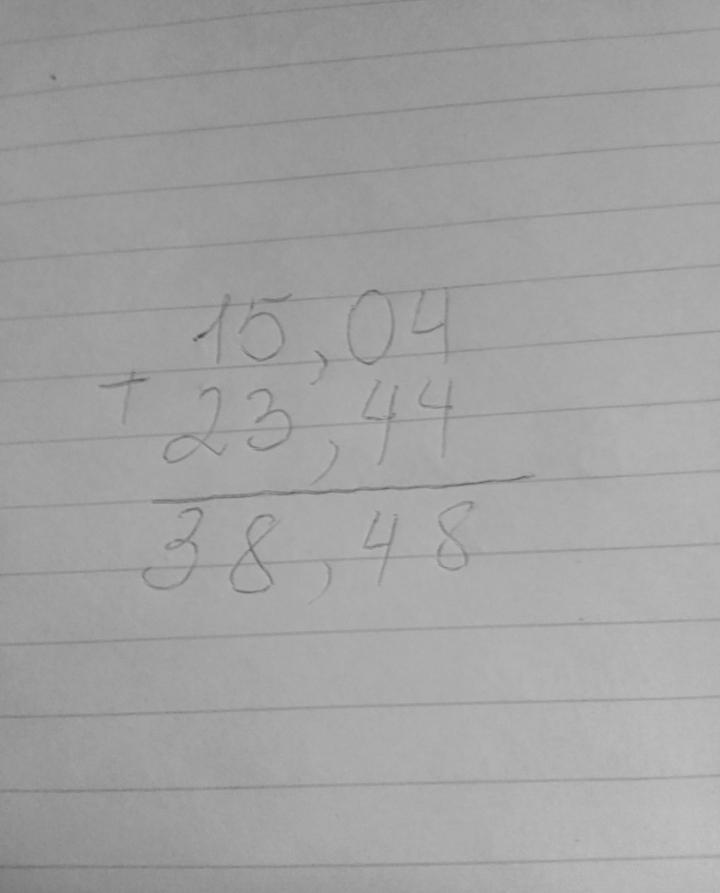 15,04
+ 23,44
38,48